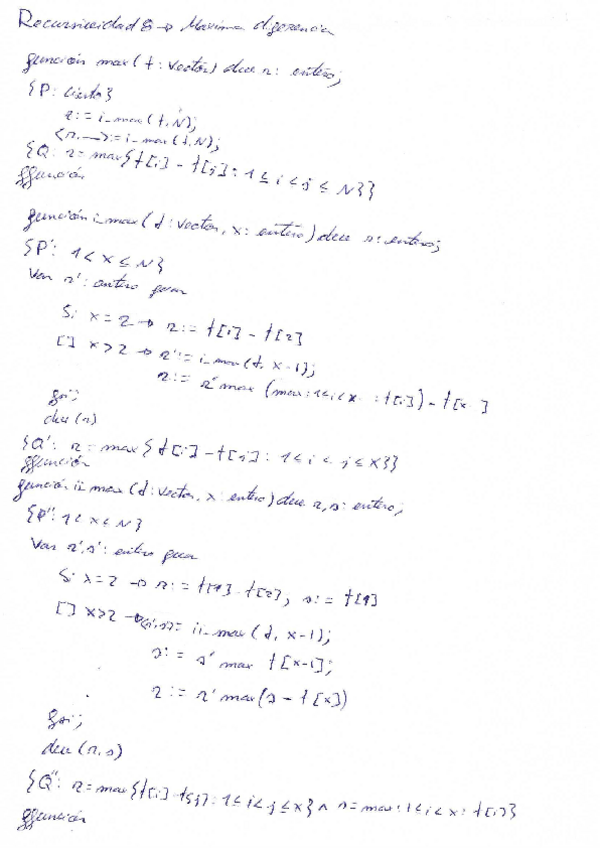 Recursividad 8 → Máxima diferencia
función max(t: vector) dev r: entero;
{P: cierto}
r := i_max(t,N);
<r,—> := i_max(t,N);
{Q: r = max{t[i] - t[j] : 1 ≤ i < j ≤ N}}
ffunción
función i_max(t: vector, x: entero) dev r: entero;
{P': 1 < x ≤ N}
Var r': entero fvar
Si x = 2 → r := t[1] - t[2]
[] x > 2 → r' := i_max(t, x-1);
r := r' max (max: 1≤i<x : t[i]) - t[x]
fsi;
dev(r)
{Q': r = max{t[i] - t[j] : 1 ≤ i < j ≤ x}}
ffunción
función ii_max(t: vector, x: entero) dev r,s: entero;
{P'': 1 < x ≤ N}
Var r',s': entero fvar
Si x = 2 → r := t[1] - t[2], s := t[1]
[] x>2 → <r',s'> := ii_max(t, x-1);
s := s' max t[x-1];
r := r' max(s - t[x])
fsi;
dev(r,s)
{Q'': r = max{t[i] - t[j] : 1 ≤ i < j ≤ x} ∧ s = max: 1 ≤ i < x : t[i]}
ffunción